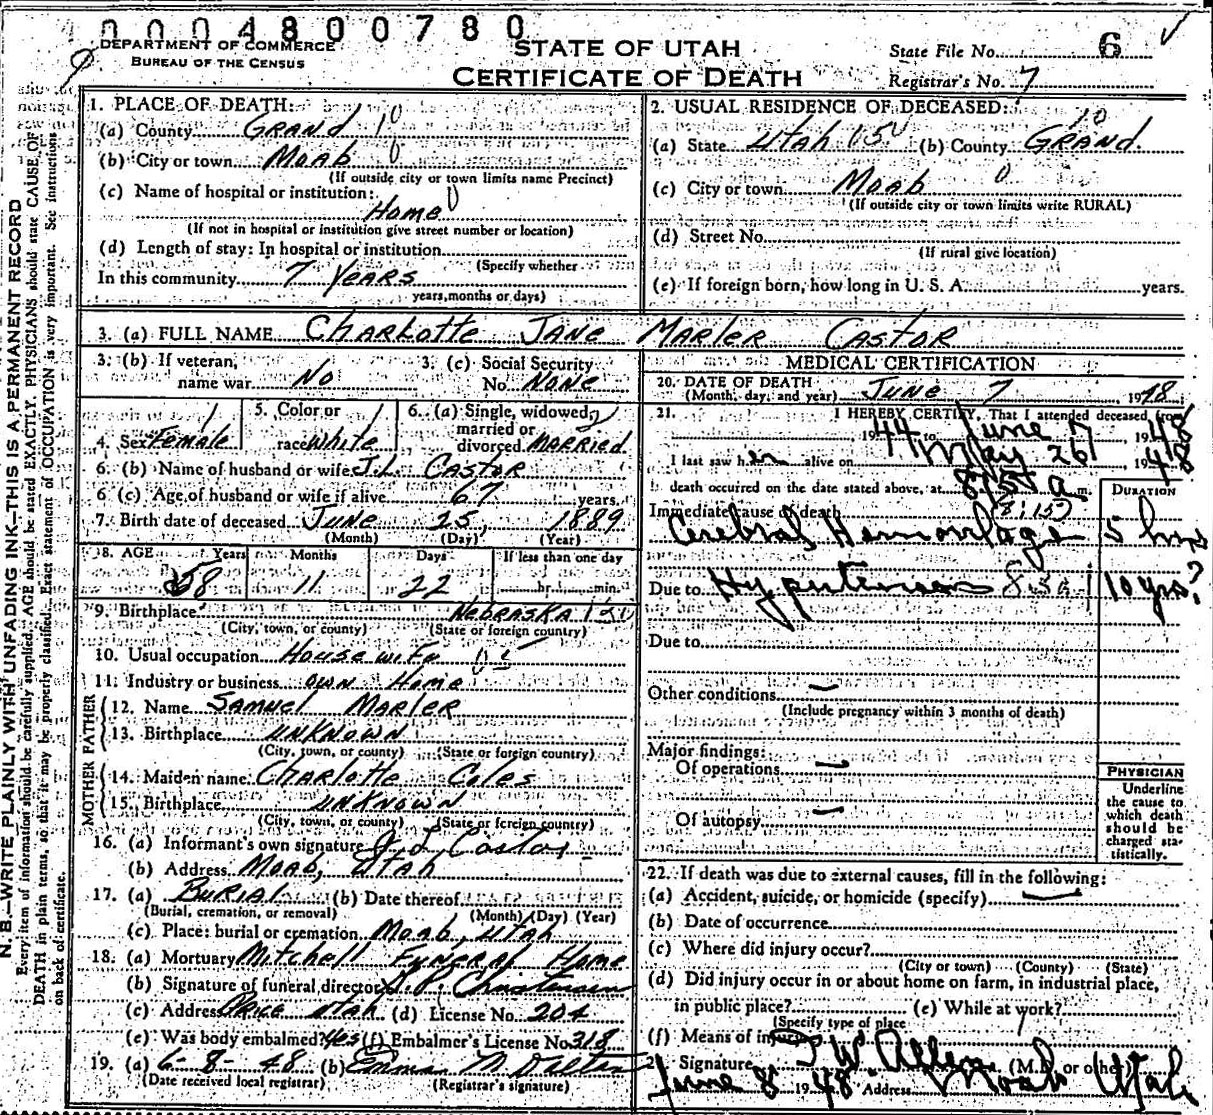 0004800780
DEPARTMENT OF COMMERCE
BUREAU OF THE CENSUS
STATE OF UTAH
CERTIFICATE OF DEATH
State File No. 6
Registrar's No. 7
N. B.—WRITE PLAINLY WITH UNFADING INK—THIS IS A PERMANENT RECORD
Every item of information should be carefully supplied. AGE should be stated EXACTLY. PHYSICIANS should state CAUSE OF
DEATH in plain terms, so that it may be properly classified. Exact statement of OCCUPATION is very important. See instructions
on back of certificate.
1. PLACE OF DEATH:
(a) County GRAND 10
(b) City or town Moab 0
(If outside city or town limits name Precinct)
(c) Name of hospital or institution:
Home 0
(If not in hospital or institution give street number or location)
(d) Length of stay: In hospital or institution
(Specify whether
In this community 7 YEARS
years, months or days)
2. USUAL RESIDENCE OF DECEASED:
(a) State Utah (b) County GRAND. 10
(c) City or town Moab 0
(If outside city or town limits write RURAL)
(d) Street No.
(If rural give location)
(e) If foreign born, how long in U. S. A. years.
3. (a) FULL NAME CHARLOTTE JANE MARLER CASTOR
3. (b) If veteran, name war No
3. (c) Social Security No. NONE
4. Sex Female
5. Color or race white
6. (a) Single, widowed, married or divorced MARRIED
6. (b) Name of husband or wife J.L. CASTOR
6 (c) Age of husband or wife if alive 67 years
7. Birth date of deceased JUNE 25, 1889
(Month) (Day) (Year)
8. AGE Years Months Days If less than one day
58 11 22 hr. min.
9. Birthplace NEBRASKA
(City, town, or county) (State or foreign country)
10. Usual occupation House wife
11. Industry or business own Home
FATHER
12. Name SAMUEL MARLER
13. Birthplace UNKNOWN
(City, town, or county) (State or foreign country)
MOTHER
14. Maiden name Charlotte Coles
15. Birthplace UNKNOWN
(City, town, or county) (State or foreign country)
16. (a) Informant's own signature J L Castor
(b) Address Moab, Utah
17. (a) BURIAL (b) Date thereof
(Burial, cremation, or removal) (Month) (Day) (Year)
(c) Place: burial or cremation Moab, Utah
18. (a) Mortuary Mitchell Funeral Home
(b) Signature of funeral director Christensen
(c) Address Price Utah (d) License No. 204
(e) Was body embalmed? Yes (f) Embalmer's License No. 318
19. (a) 6-8-48 (b) Emma M. Dalton
(Date received local registrar) (Registrar's signature)
MEDICAL CERTIFICATION
20. DATE OF DEATH June 7, 1948
(Month, day, and year)
21. I HEREBY CERTIFY, That I attended deceased from
1944 to June 7, 1948
I last saw her alive on May 26, 1948
death occurred on the date stated above, at 8:15 a m.
DURATION
Immediate cause of death 8:15
Cerebral Hemorrhage 5 hrs
Due to Hypertension 10 yrs?
Due to
Other conditions —
(Include pregnancy within 3 months of death)
Major findings:
Of operations —
Of autopsy —
PHYSICIAN
Underline
the cause to
which death
should be
charged sta-
tistically.
22. If death was due to external causes, fill in the following:
(a) Accident, suicide, or homicide (specify) —
(b) Date of occurrence
(c) Where did injury occur?
(City or town) (County) (State)
(d) Did injury occur in or about home on farm, in industrial place,
in public place? (e) While at work?
(Specify type of place
(f) Means of injury
Signature I W Allen (M.D. or other)
June 8 1948 Address Moab Utah